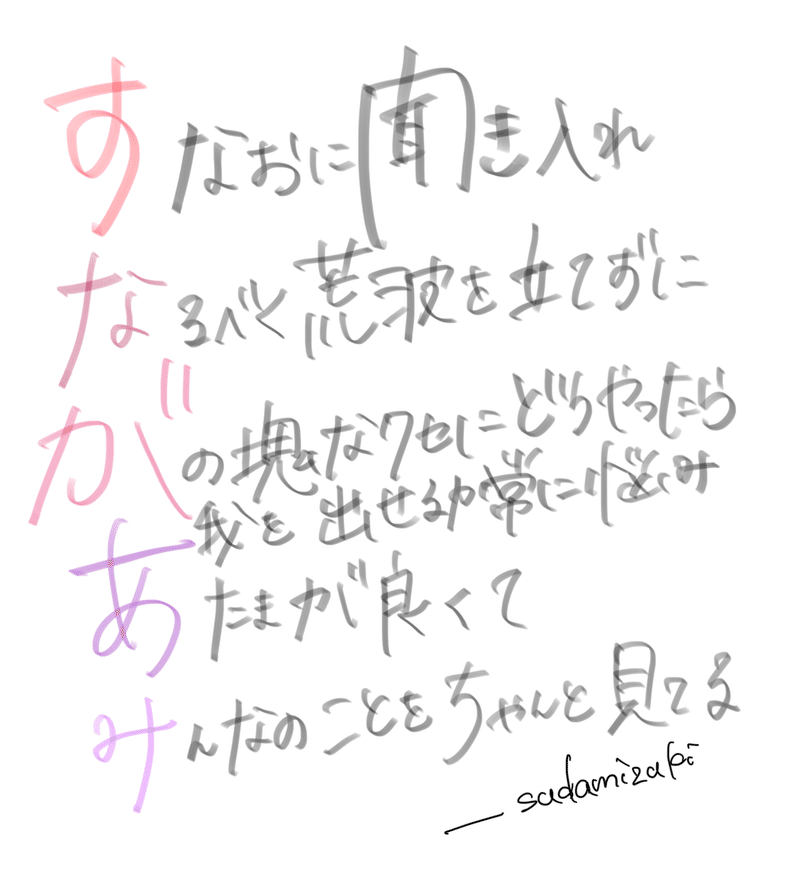 すなおに聞き入れ
なるべく荒波を立てずに
がの塊なクセにどうやったら
我を出せるか常に悩み
あたまが良くて
みんなのことをちゃんと見てる
sadamizaki